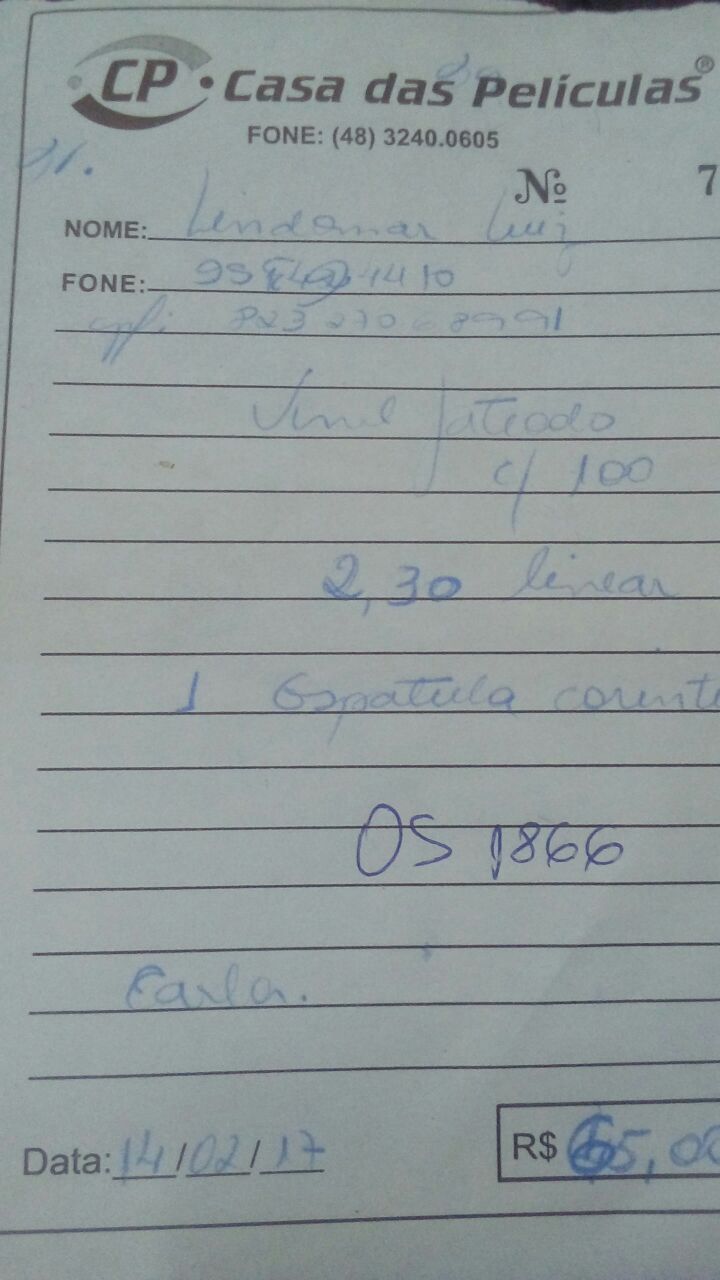 CP • Casa das Películas®
FONE: (48) 3240.0605
Nº 7
NOME: Lindomar Luiz
FONE:
cpf: 823 270 689 91
Vinil Jateado
c/ 100
2,30 linear
1 Espatula
OS 1866
Carla.
Data: 14/02/17
R$ 65,00